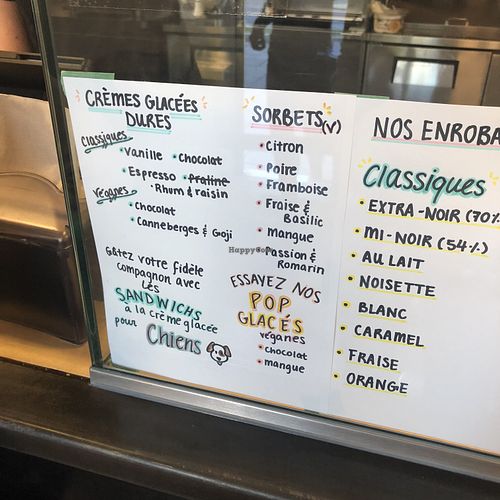 CRÈMES GLACÉES
DURES
Classiques
• Vanille • Chocolat
• Espresso • Praline
• Rhum & raisin
Véganes
• Chocolat
• Canneberges & Goji
Gâtez votre fidèle
compagnon avec
Les
SANDWICHS
à la crème glacée
pour Chiens
SORBETS (V)
• Citron
• Poire
• Framboise
• Fraise &
Basilic
• Mangue
• Passion &
Romarin
ESSAYEZ NOS
POP
GLACÉS
véganes
• chocolat
• mangue
NOS ENROBA
Classiques
• EXTRA-NOIR (70%
• MI-NOIR (54%)
• AU LAIT
• NOISETTE
• BLANC
• CARAMEL
• FRAISE
• ORANGE
HappyCow